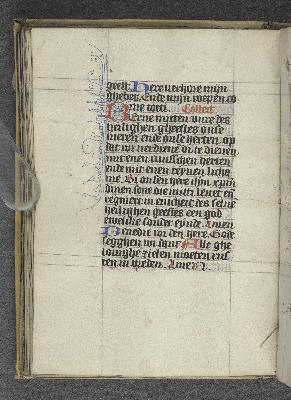 geest. Here verhore mijn
ghebet. Ende mijn roepen co
me totti. Collect.
Berne mitten vure des
heilighen gheestes onse
nieren ende onse herten op
dat wi verdiene di te dienen
mit enen lichame
ende mit enen reynen herte
Bi onsen here ihm xpm
dinen sone die mitti levet en
regneert in enicheit des selve
heilighen geestes een god
ewelike sonder eynde. Amen
Benedie wi den here. Gode
segghen wi danc. Alle ghe
lovighe zielen moeten rus
ten in vreden. Amen.